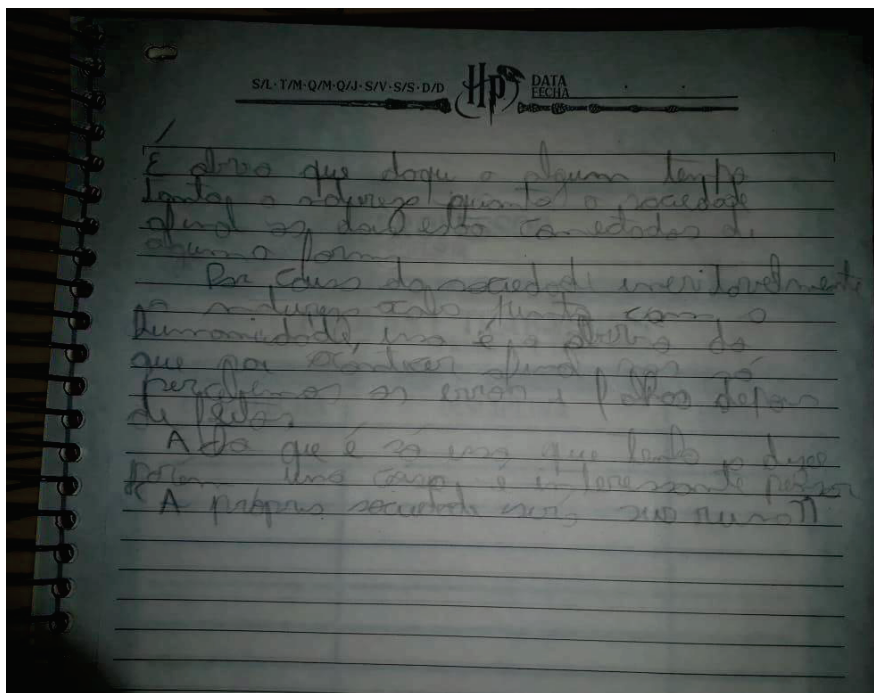 S/L·T/M·Q/M·Q/J·S/V·S/S·D/D HP DATA
FECHA
É obvio que daqui a algum tempo
tanto a natureza quanto a sociedade
afinal as duas estão conectadas de
alguma forma
Por causa da sociedade inevitavelmente
a natureza junto com a
humanidade, isso é o obvio do
que por acontecer afinal nós só
percebemos os erros e falhas depois
de feitos
Acho que é só isso que tenho a dizer
porém uma coisa é interessante pensar
A própria sociedade será sua ruína